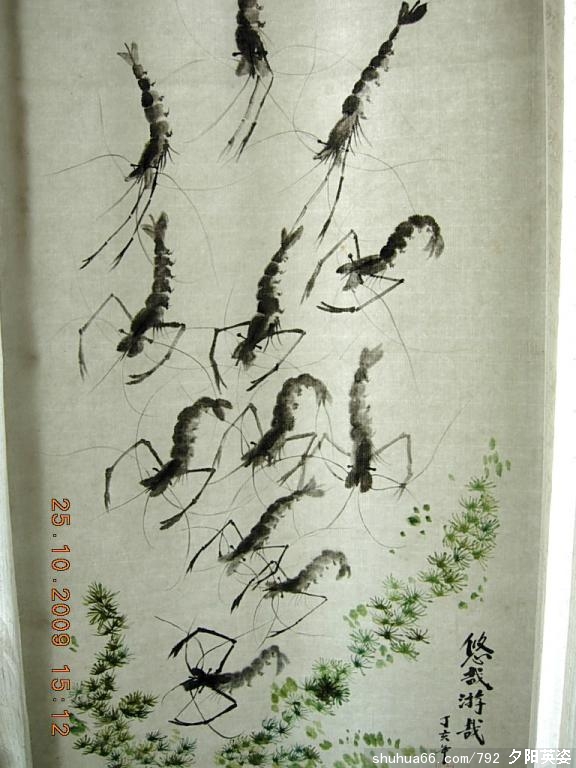 悠哉游哉
丁亥年
25.10.2009 15:12
shuhua66.com/792 夕阳英姿